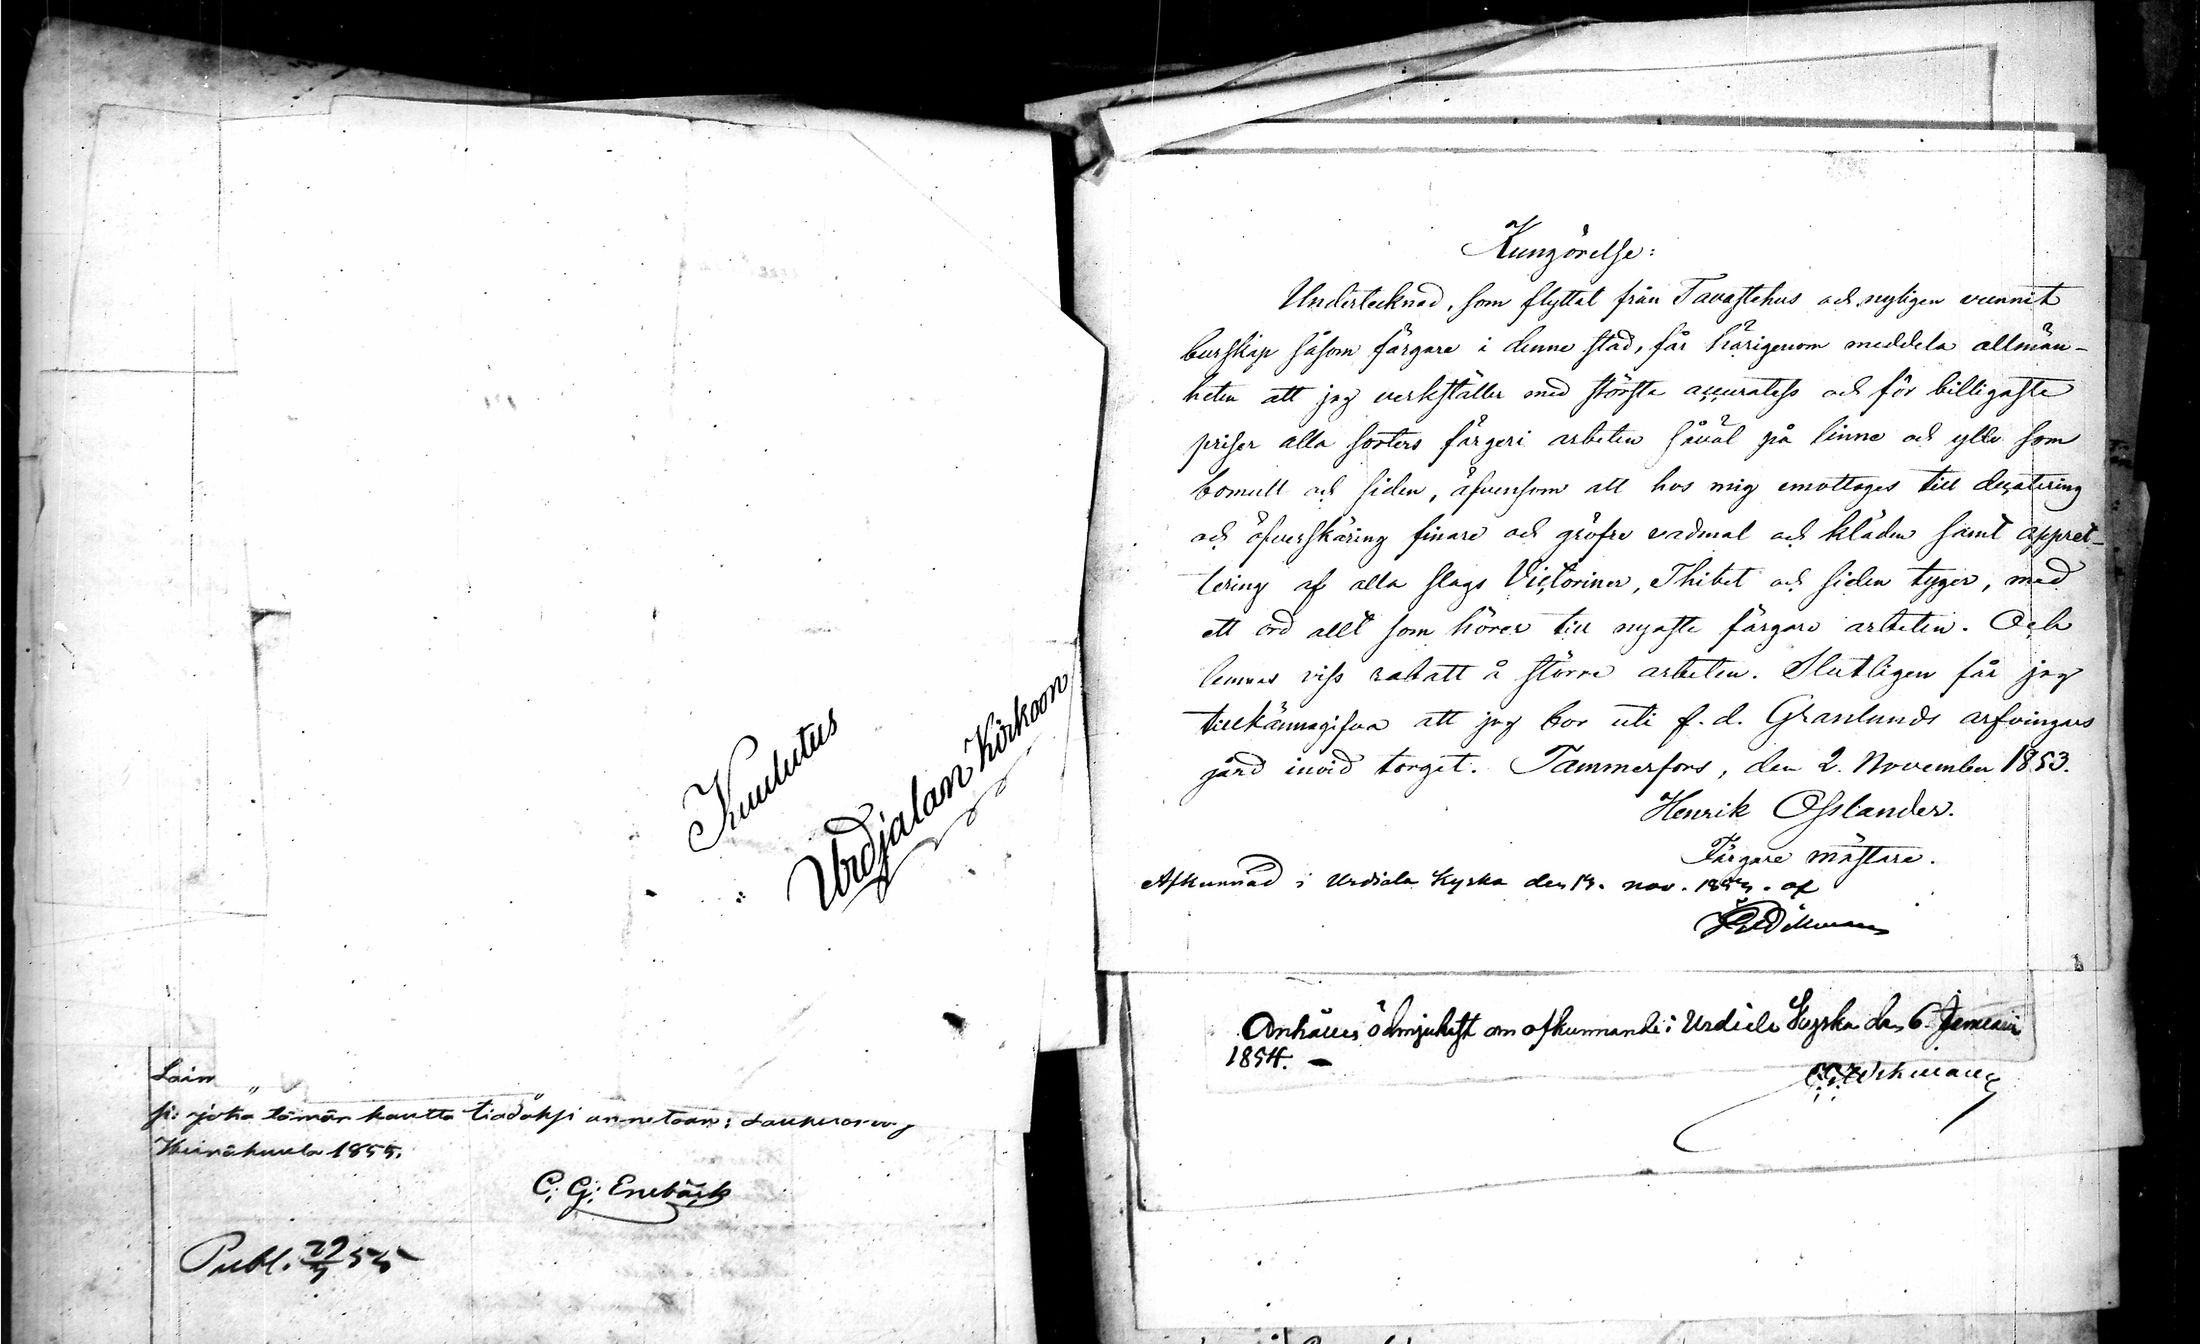 Kuulutus
Urdjalan Kirkoon
Lain
si: joka tämän kautta tiedoksi annetaan:
Heinäkuula 1855.
C: G: Enebäck
Publ. 22/7 55
Kungörelse:
Undertecknad, som flyttat från Tavastehus och nyligen vunnit
burskap såsom färgare i denne stad, får härigenom meddela allmän-
heten att jag verkställer med största accuratess och för billigaste
priser alla sorters färgeri arbeten såväl på linne och ylle som
bomull och siden, äfvensom att hos mig emottages till decatering
och öfverskäring finare och gröfre vadmal och kläden samt appret-
tering af alla slags Victoriner, Thibet och siden tyger, med
ett ord allt som hörer till nyaste färgare arbeten. Och
lemnas viss rabatt å större arbeten. Slutligen får jag
tillkännagifva att jag bor uti f. d. Granlunds arfvingars
gård invid torget. Tammerfors, den 2. November 1853.
Henrik Osslander.
Färgare mästare.
Afkunnad i Urdiala Kyrka den 13. nov. 1853. af
Anhålles ödmjukast om afkunnande i Urdiala Kyrka den 6. Januari
1854. –